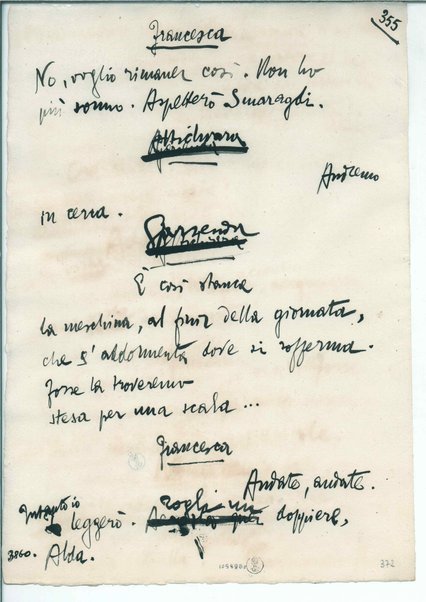 355
Francesca
No, voglio rimaner così. Non ho
più sonno. Aspetterò Smaragdi.
Altichiara
Andremo
in cerca.
Garsenda
È così stanca
la meschina, al finir della giornata,
che s'addormenta dove si sofferma.
Forse la troveremo
stesa per una scala...
Francesca
Andate, andate.
Intanto io
leggerò. Togli un doppiere,
3860. Alda.
372